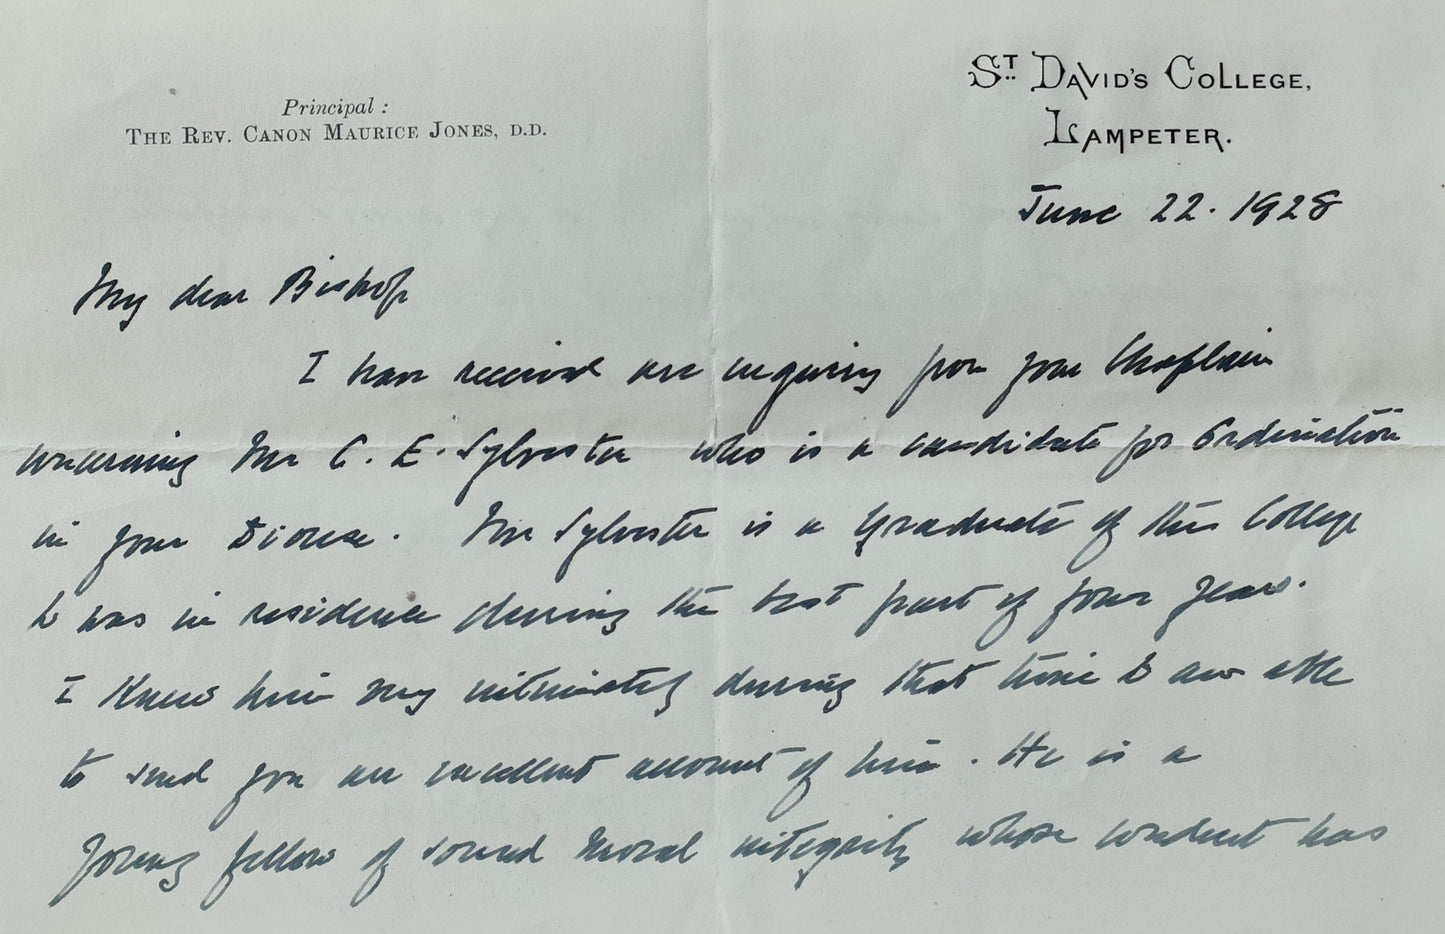 Principal :
THE REV. CANON MAURICE JONES, D.D.
ST. DAVID'S COLLEGE,
LAMPETER.
June 22. 1928
My dear Bishop
I have received an inquiry from your Chaplain
concerning Mr C. E. Sylvester who is a candidate for Ordination
in your Diocese. Mr Sylvester is a Graduate of this College
& was in residence during the best part of four years.
I knew him very intimately during that time & am able
to send you an excellent account of him. He is a
young fellow of sound moral integrity whose conduct has